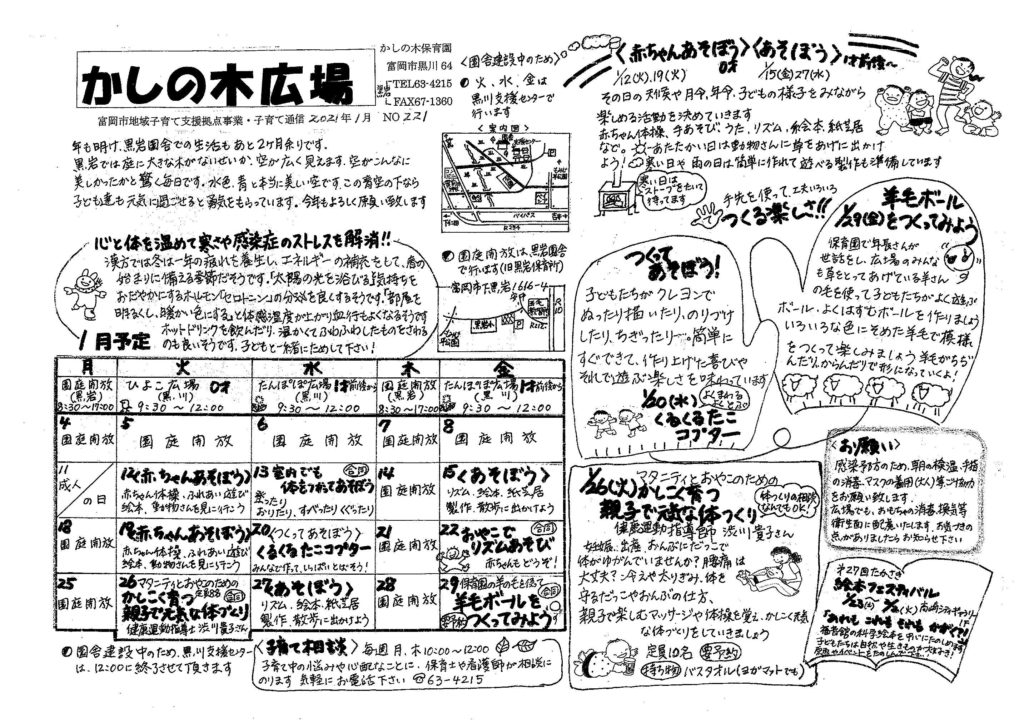 かしの木広場
かしの木保育園
富岡市黒川64
TEL63-4215
FAX67-1360
富岡市地域子育て支援拠点事業・子育て通信 2021年1月 NO221
年も明け、黒岩園舎での生活もあと2ヶ月余りです。
黒岩では庭に大きな木がないせいか、空が広く見えます。空がこんなに
美しかったかと驚く毎日です。水色、青と本当に美しい空です。この青空の下なら
子ども達も元気に過ごせると勇気をもらっています。今年もよろしくお願い致します
心と体を温めて寒さや感染症のストレスを解消!!
漢方では冬は一年の疲れを養生し、エネルギーの補充をして、春の
始まりに備える季節だそうです。「太陽の光を浴びる」気持ちを
おだやかにするホルモン「セロトニン」の分泌を良くするそうです。「部屋を
明るくし、暖かい色にする」と体感温度が上がり血行もよくなるそうです
ホットドリンクを飲んだり、温かくてふわふわしたものをさわる
のも良いそうです。子どもと一緒にためして下さい!
1月予定
月 火 水 木 金
園庭開放(黒岩) 8:30~17:00
ひよこ広場 0才 (黒川) 9:30~12:00
たんぽぽ広場 1才前後から (黒川) 9:30~12:00
園庭開放(黒岩) 8:30~17:00
たんぽぽ広場 1才前後から (黒川) 9:30~12:00
4 園庭開放
5 園庭開放
6 園庭開放
7 園庭開放
8 園庭開放
11 成人の日
12 〈赤ちゃんあそぼう〉
赤ちゃん体操、ふれあい遊び
絵本、動物さんも見に行こう
13 室内でも 合同
体をつかってあそぼう
登ったり
おりたり、すべったりくぐったり
14 園庭開放
15 〈あそぼう〉
リズム、絵本、紙芝居
製作、散歩に出かけよう
18 園庭開放
19 〈赤ちゃんあそぼう〉
赤ちゃん体操、ふれあい遊び
絵本、動物さんも見に行こう
20 〈つくってあそぼう〉
くるくるたこコプター
みんなで作って、いっぱいとばそう!
21 園庭開放
22 おやこで 合同
リズムあそび
赤ちゃんもどうぞ!
25 園庭開放
26 マタニティとおやこのための
かしこく育つ 定員10名 合同
親子で元気な体づくり
健康運動指導士 渋川貴子さん
27 〈あそぼう〉
リズム、絵本、紙芝居
製作、散歩に出かけよう
28 園庭開放
29 保育園の羊の毛を使って 合同
羊毛ボールを
要予約 つくってみよう
園舎建設中のため、黒川支援センター
は、12:00に終了させて頂きます
〈子育て相談〉 毎週月、木10:00~12:00
子育て中の悩みや心配なことに、保育士や看護師が相談に
のります 気軽にお電話下さい ☎63-4215
〈園舎建設中のため〉
火、水、金は
黒川支援センターで
行います
〈案内図〉
バイパス
R254
園庭開放は、黒岩園舎
で行います(旧黒岩保育所)
富岡市下黒岩1616-4
〈赤ちゃんあそぼう〉〈あそぼう〉
0才 1才前後~
1/12(火)、19(火) 1/15(金)27(水)
その日の天候や月令、年令、子どもの様子をみながら
楽しめる活動を決めていきます
赤ちゃん体操、手あそびうた、リズム、絵本、紙芝居
など。あたたかい日は動物さんに草をあげに出かけ
よう! 寒い日や雨の日は簡単に作れて遊べる製作も準備しています
寒い日は
ストーブをたいて
待ってます
手先を使って、工夫いろいろ
つくる楽しさ!!
つくって
あそぼう!
子どもたちがクレヨンで
ぬったり描いたり、のりづけ
したり、ちぎったりー。簡単に
すぐできて、作り上げた喜びや
それで遊ぶ楽しさを味わっています
1/20(水) よくまわるよくとぶ
くるくるたこ
コプター
羊毛ボール
1/29(金)をつくってみよう
保育園で年長さんが
世話をし、広場のみんな
も草をとってあげている羊さん
の毛を使って子どもたちがよく遊ぶ
ボール・よくはずむボールを作りましょう
いろいろな色にそめた羊毛で模様
をつくって楽しみましょう 羊毛がちぢ
んだり、からんだりで形になっていくよ!
マタニティとおやこのための
1/26(火)かしこく育つ
親子で元気な体づくり
体づくりの相談なんでもOK!
健康運動指導師 渋川貴子さん
妊娠、出産、おんぶにだっこで
体がゆがんでいませんか?腰痛は
大丈夫?冷えや太りぎみ、体を
守るだっこやおんぶの仕方、
親子で楽しむマッサージや体操を覚え、かしこく元気
な体づくりをしていきましょう
定員10名 要予約
持ち物 バスタオル(ヨガマットでも)
〈お願い〉
感染予防のため、朝の検温、手指
の消毒、マスクの着用(大人)等ご協力
をお願い致します。
広場でも、おもちゃの消毒、換気等
衛生面に配慮いたします。お気づき
の点がありましたらお知らせ下さい
第27回たかさき
絵本フェスティバル
「あれも これも それも かがく?!」